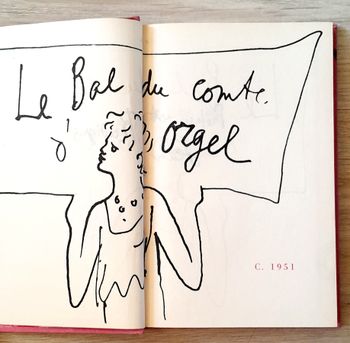 Le Bal du comte
d'Orgel
C. 1951